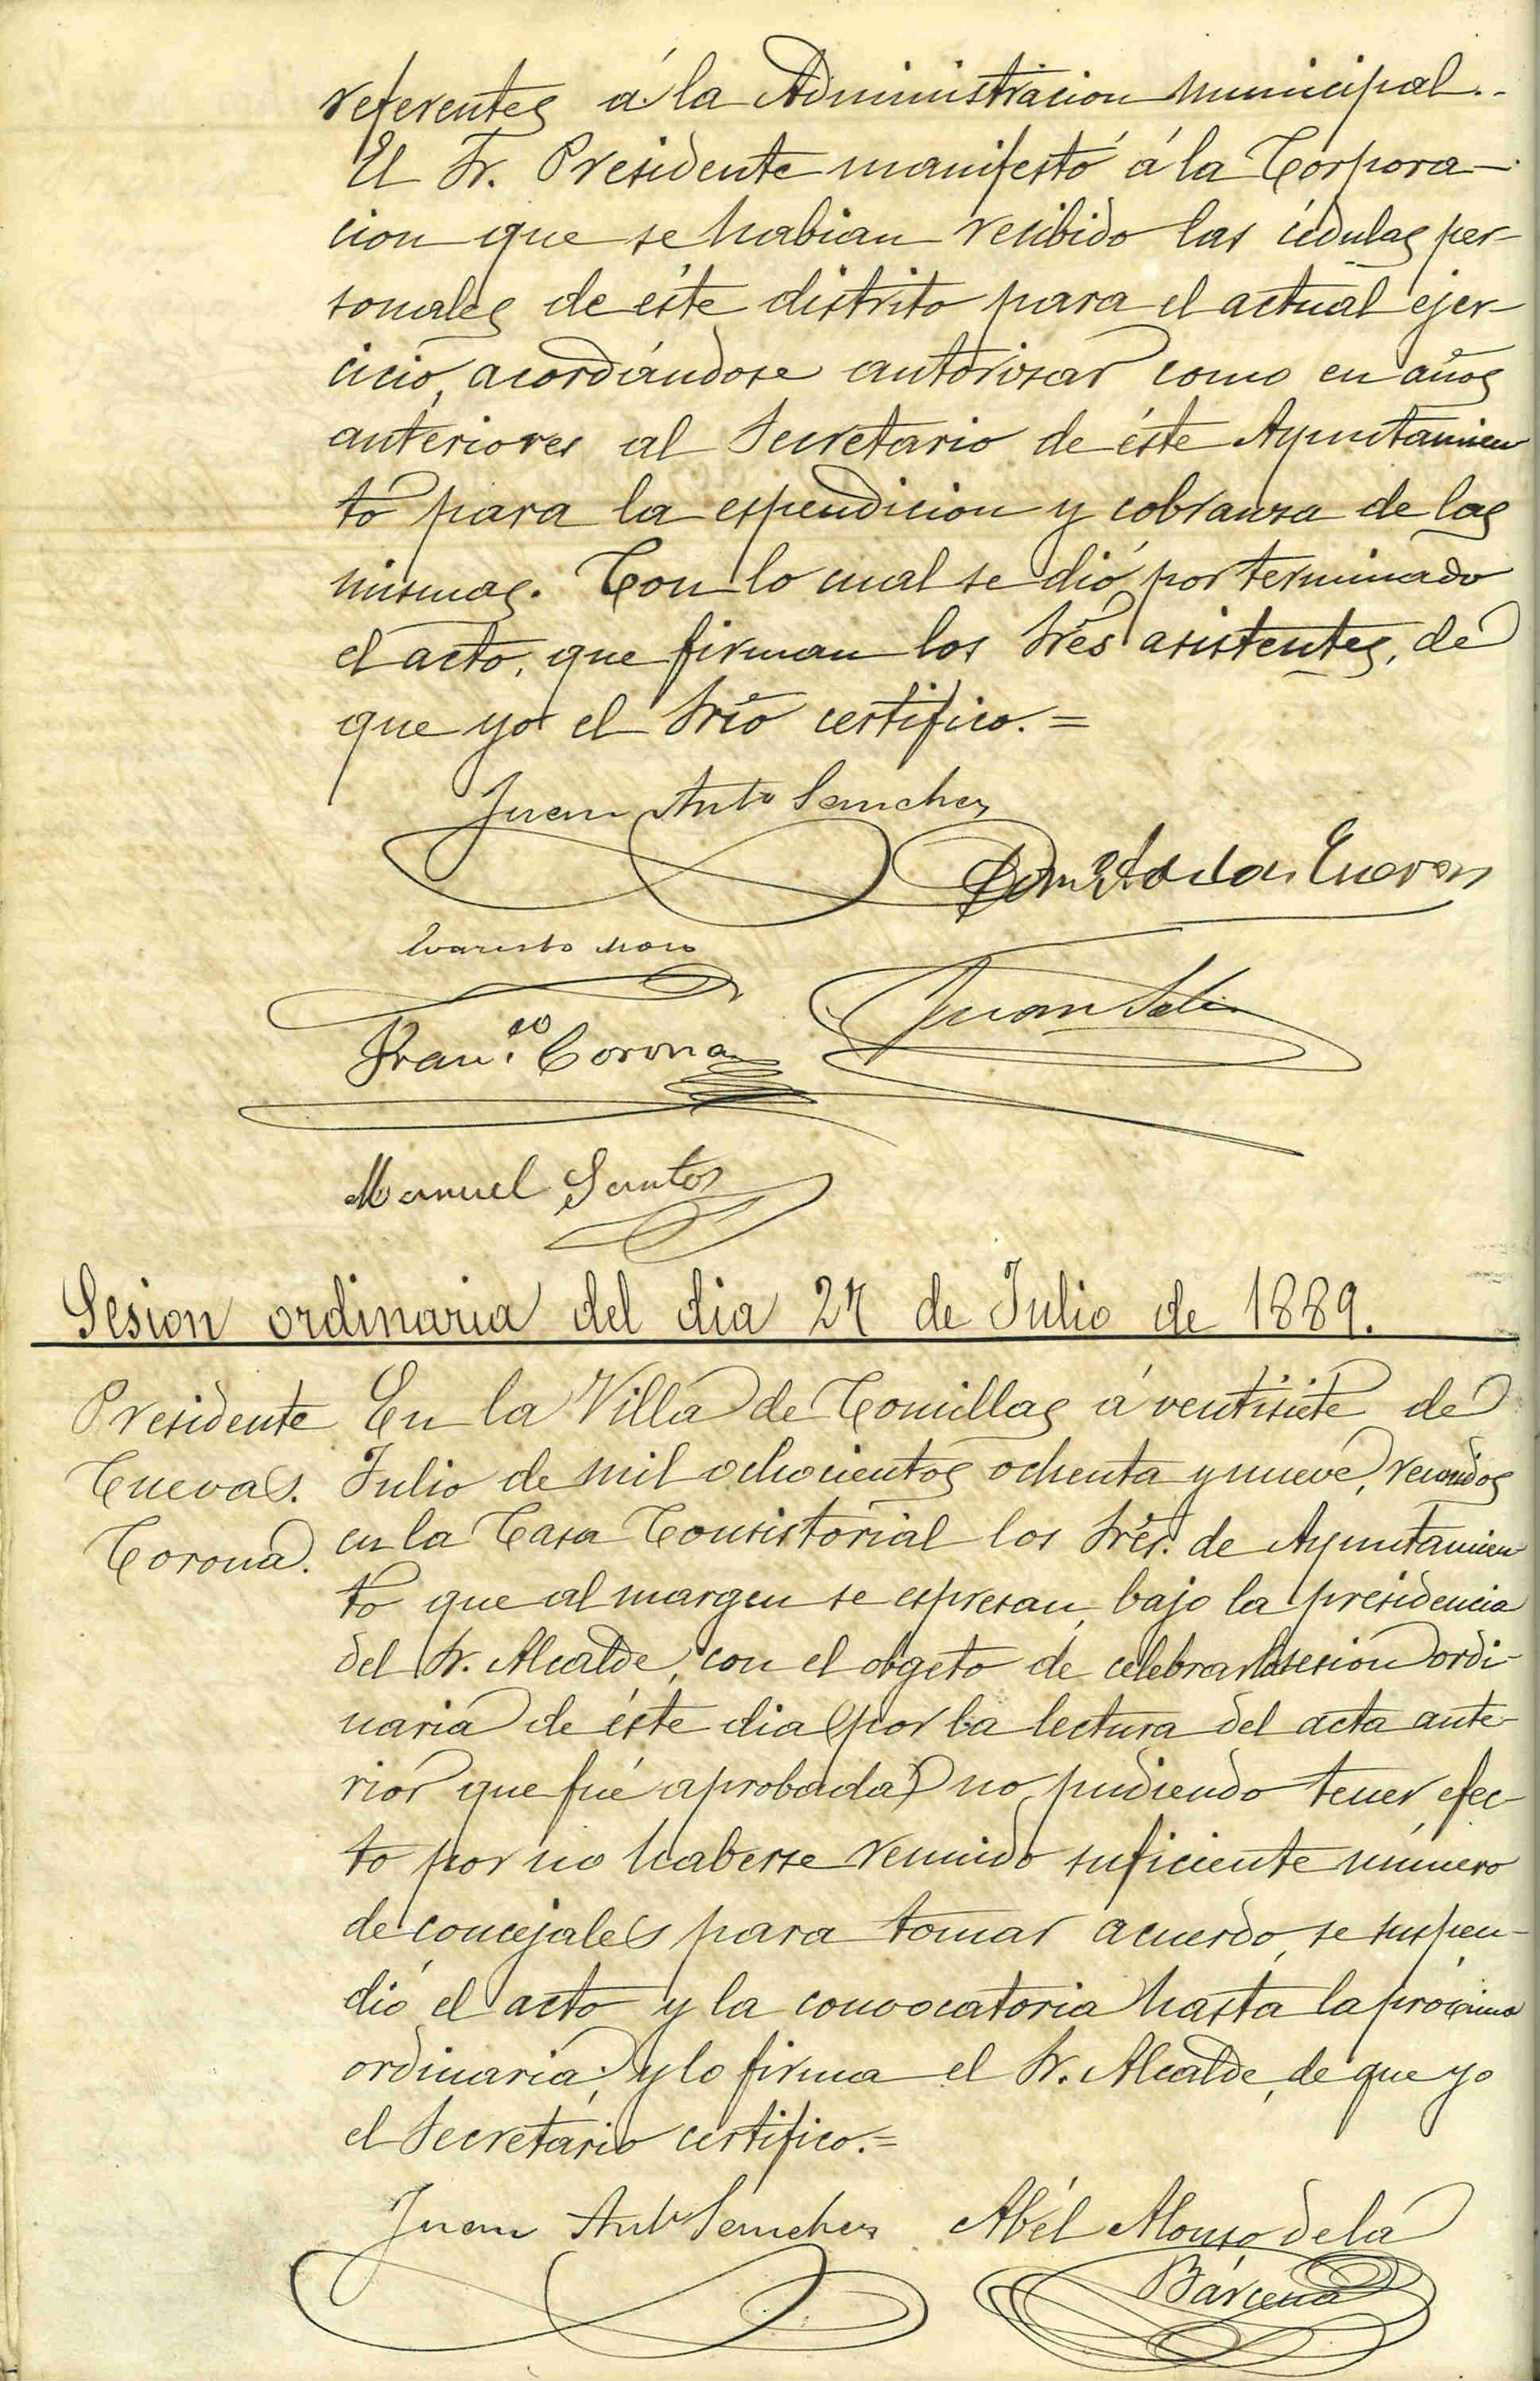 referentes á la Administracion Municipal.-
El Sr. Presidente manifestó á la Corpora-
cion que se habian recibido las cédulas per-
sonales de éste distrito para el actual ejer-
cicio, acordándose autorisar como en años
anteriores al Secretario de éste Ayuntamien
to para la espendicion y cobransa de las
mismas. Con lo cual se dió por terminado
el acto, que firman los Sres asistentes, de
que yo el Srio certifico.=
Juan Anto Sanchez
de las Cuevas
Evaristo
Juan
Franco. Corona
Manuel Santos
Sesion ordinaria del dia 27 de Julio de 1889.
Presidente
Cuevas.
Corona.
En la Villa de Comillas á ventisiete de
Julio de mil ochocientos ochenta y nueve, reunidos
en la Casa Consistorial los Sres. de Ayuntamien
to que al margen se espresan, bajo la presidencia
del Sr. Alcalde, con el objeto de celebrar la sesion ordi-
naria de éste dia (por la lectura del acta ante-
rior que fué aprobada) no pudiendo tener efec-
to por no haberse reunido suficiente número
de concejales para tomar acuerdo, se suspen-
dió el acto y la convocatoria hasta la próxima
ordinaria; y lo firma el Sr. Alcalde, de que yo
el Secretario certifico.=
Juan Anto Sanchez
Abél Alonso de la
Bárcena